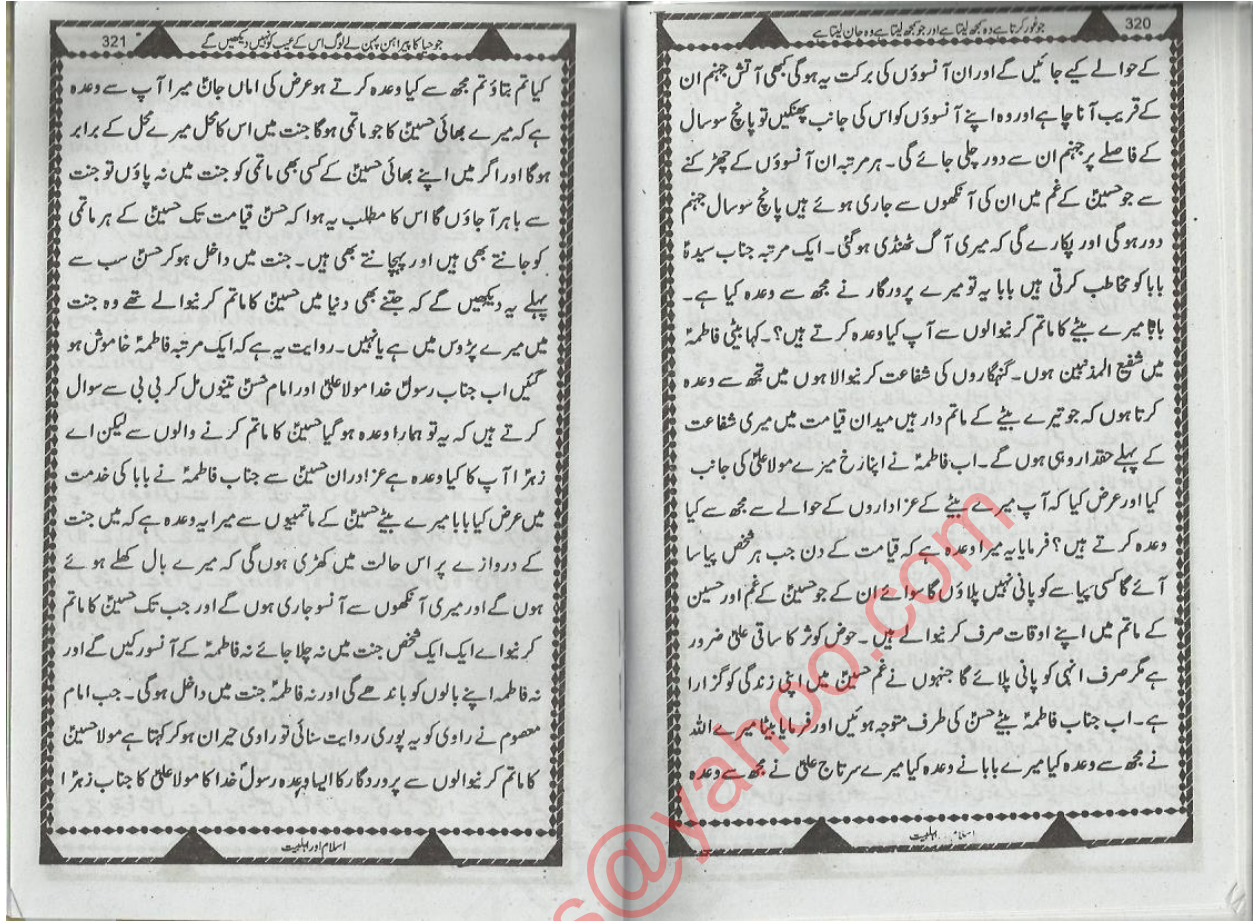 320
جو غور کرتا ہے وہ سمجھ لیتا ہے اور جو سمجھ لیتا ہے وہ جان لیتا ہے
کے حوالے کیے جائیں گے اور ان آنسوؤں کی برکت یہ ہوگی کبھی آتش جہنم ان
کے قریب آنا چاہے اور وہ اپنے آنسوؤں کو اس کی جانب پھنکیں تو پانچ سو سال
کے فاصلے پر جہنم ان سے دور چلی جائے گی۔ ہر مرتبہ ان آنسوؤں کے چھڑکنے
سے جو حسینؑ کے غم میں ان کی آنکھوں سے جاری ہوئے ہیں پانچ سو سال جہنم
دور ہوگی اور پکارے گی کہ میری آگ ٹھنڈی ہوگئی۔ ایک مرتبہ جناب سیدہؑ
بابا کو مخاطب کرتی ہیں بابا یہ تو میرے پرورگار نے مجھ سے وعدہ کیا ہے۔
بابا میرے بیٹے کا ماتم کرنیوالوں سے آپ کیا وعدہ کرتے ہیں؟۔ کہا بیٹی فاطمہؑ
میں شفیع المذنبین ہوں۔ گنہگاروں کی شفاعت کرنیوالا ہوں میں تجھ سے وعدہ
کرتا ہوں کہ جو تیرے بیٹے کے ماتم دار ہیں میدان قیامت میں میری شفاعت
کے پہلے حقدار وہی ہوں گے۔ اب فاطمہؑ نے اپنا رخ میرے مولا علیؑ کی جانب
کیا اور عرض کیا کہ آپ میرے بیٹے کے عزاداروں کے حوالے سے مجھ سے کیا
وعدہ کرتے ہیں؟ فرمایا یہ میرا وعدہ ہے کہ قیامت کے دن جب ہر شخص پیاسا
آئے گا کسی پیاسے کو پانی نہیں پلاؤں گا سوائے ان کے جو حسینؑ کے غم اور حسین
کے ماتم میں اپنے اوقات صرف کرنیوالے ہیں۔ حوض کوثر کا ساقی علیؑ ضرور
ہے مگر صرف انہی کو پانی پلائے گا جنہوں نے غم حسینؑ میں اپنی زندگی کو گزارا
ہے۔ اب جناب فاطمہؑ بیٹے حسنؑ کی طرف متوجہ ہوئیں اور فرمایا بیٹا میرے اللہ
نے مجھ سے وعدہ کیا میرے بابا نے وعدہ کیا میرے سرتاج علیؑ نے مجھ سے وعدہ
اسلام ... اہلبیت
321
جو حیا کا پیراہن پہن لے لوگ اس کے عیب کو نہیں دیکھیں گے
کیا تم بتاؤ تم مجھ سے کیا وعدہ کرتے ہو عرض کی اماں جانؑ میرا آپ سے وعدہ
ہے کہ میرے بھائی حسینؑ کا جو ماتمی ہوگا جنت میں اس کا محل میرے محل کے برابر
ہوگا اور اگر میں اپنے بھائی حسینؑ کے کسی بھی ماتمی کو جنت میں نہ پاؤں تو جنت
سے باہر آجاؤں گا اس کا مطلب یہ ہوا کہ حسنؑ قیامت تک حسینؑ کے ہر ماتمی
کو جانتے بھی ہیں اور پہچانتے بھی ہیں۔ جنت میں داخل ہو کر حسنؑ سب سے
پہلے یہ دیکھیں گے کہ جتنے بھی دنیا میں حسینؑ کا ماتم کرنیوالے تھے وہ جنت
میں میرے پڑوس میں ہے یا نہیں۔ روایت یہ ہے کہ ایک مرتبہ فاطمہؑ خاموش ہو
گئیں اب جناب رسولؐ خدا مولا علیؑ اور امام حسنؑ تینوں مل کر بی بی سے سوال
کرتے ہیں کہ یہ تو ہمارا وعدہ ہوگیا حسینؑ کا ماتم کرنے والوں سے لیکن اے
زہرؑا آپ کا کیا وعدہ ہے عزادران حسینؑ سے جناب فاطمہؑ نے بابا کی خدمت
میں عرض کیا بابا میرے بیٹے حسینؑ کے ماتمیوں سے میرا یہ وعدہ ہے کہ میں جنت
کے دروازے پر اس حالت میں کھڑی ہوں گی کہ میرے بال کھلے ہوئے
ہوں گے اور میری آنکھوں سے آنسو جاری ہوں گے اور جب تک حسینؑ کا ماتم
کرنیواے ایک ایک شخص جنت میں نہ چلا جائے نہ فاطمہؑ کے آنسو رکیں گے اور
نہ فاطمہ اپنے بالوں کو باندھے گی اور نہ فاطمہؑ جنت میں داخل ہوگی۔ جب امام
معصوم نے راوی کو یہ پوری روایت سنائی تو راوی حیران ہو کر کہتا ہے مولا حسینؑ
کا ماتم کرنیوالوں سے پروردگار کا ایسا وعدہ رسولؐ خدا کا مولا علیؑ کا جناب زہرؑا
اسلام اور اہلبیت
s@yahoo.com